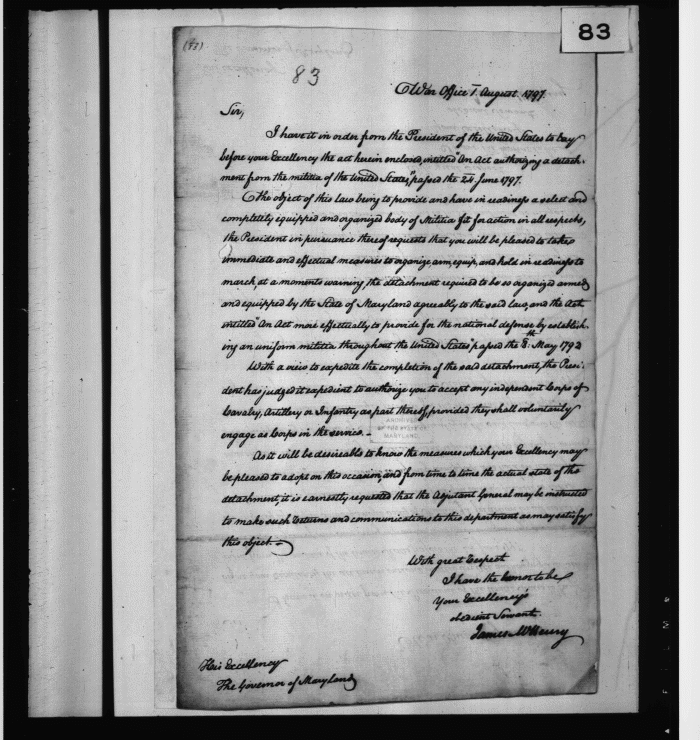 83
(83)
83
War Office 1 August 1797.
Sir,
I have it in order from the President of the United States to lay
before your Excellency the act herein enclosed, intitled "An Act authorizing a detach-
ment from the militia of the United States," passed the 24 June 1797.
The object of this law being to provide and have in readiness a select and
completely equipped and organized body of Militia fit for action in all respects,
the President in pursuance thereof requests that you will be pleased to take
immediate and effectual measures to organize, arm, equip, and hold in readiness to
march, at a moments warning, the detachment required to be so organized armed
and equipped by the State of Maryland agreably to the said law, and the Act
intitled "An Act more effectually to provide for the national defense, by establish-
ing an uniform militia throughout the United States" passed the 8th May 1792
With a view to expedite the completion of the said detachment, the Presi-
dent has judged it expedient to authorize you to accept any independent Corps of
Cavalry, Artillery or Infantry as part thereof, provided they shall voluntarily
engage as Corps in the service.-
As it will be desireable to know the measures which your Excellency may
be pleased to adopt on this occasion, and from time to time the actual state of the
detachment, it is earnestly requested that the Adjutant General may be instructed
to make such returns and communications to this department as may satisfy
this object.-
With great respect
I have the honor to be
Your Excellency's
obedient Servant.
James McHenry
His Excellency
The Governor of Maryland